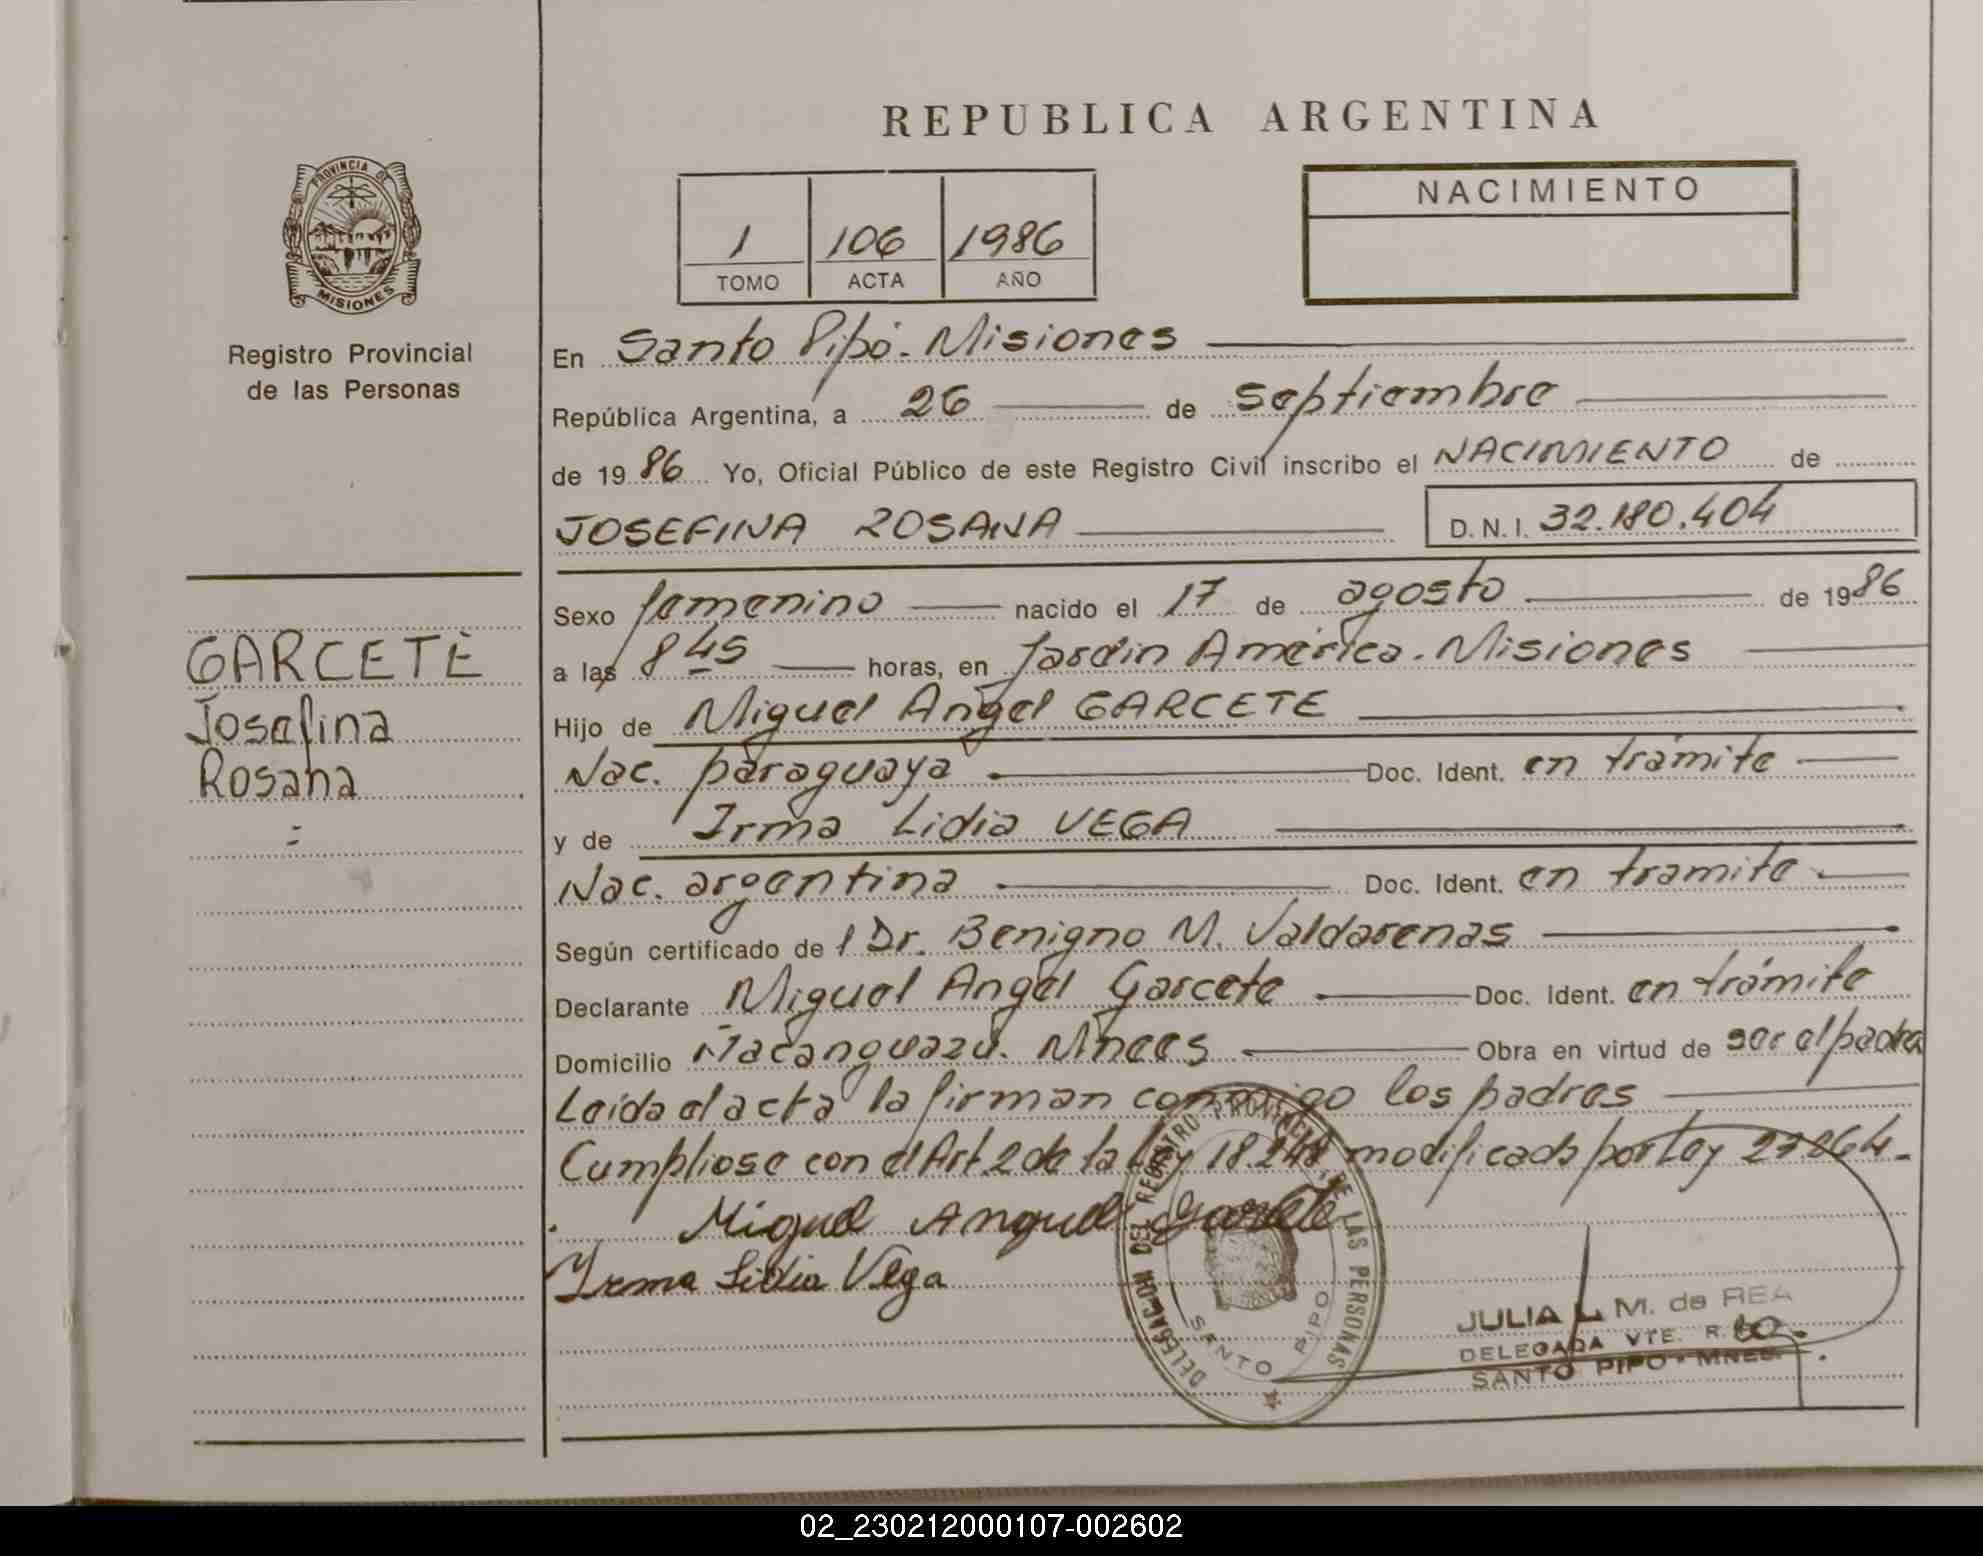 REPUBLICA ARGENTINA
PROVINCIA DE
MISIONES
Registro Provincial
de las Personas
1 106 1986
TOMO ACTA AÑO
NACIMIENTO
En Santo Pipó. Misiones
República Argentina, a 26 de septiembre
de 1986 Yo, Oficial Público de este Registro Civil inscribo el NACIMIENTO de
JOSEFINA ROSANA D.N.I. 32.180.404
Sexo femenino nacido el 17 de agosto de 1986
a las 8 45 horas, en Jardin América. Misiones
Hijo de Miguel Angel GARCETE
Nac. paraguaya Doc. Ident. en trámite
y de Irma Lidia VEGA
Nac. argentina Doc. Ident. en tramite
Según certificado del Dr. Benigno M. Valdarenas
Declarante Miguel Angel Garcete Doc. Ident. en trámite
Domicilio Ñacanguazú. Mnees Obra en virtud de ser el padre
Leída el acta la firman conmigo los padres
Cumpliose con el Art. 2 de la Ley 18.248 modificado por Ley 23.264.
Miguel Anguel Garcete
Irma Lidia Vega
GARCETE
Josefina
Rosana
=
DELEGACION DEL REGISTRO PROVINCIAL DE LAS PERSONAS
SANTO PIPO
JULIA L. M. de REA
DELEGADA VTE. R.
SANTO PIPO - MNES.
02_230212000107-002602